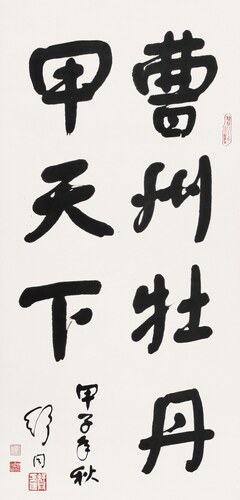 曹州牡丹
甲天下
甲子年秋
舒同